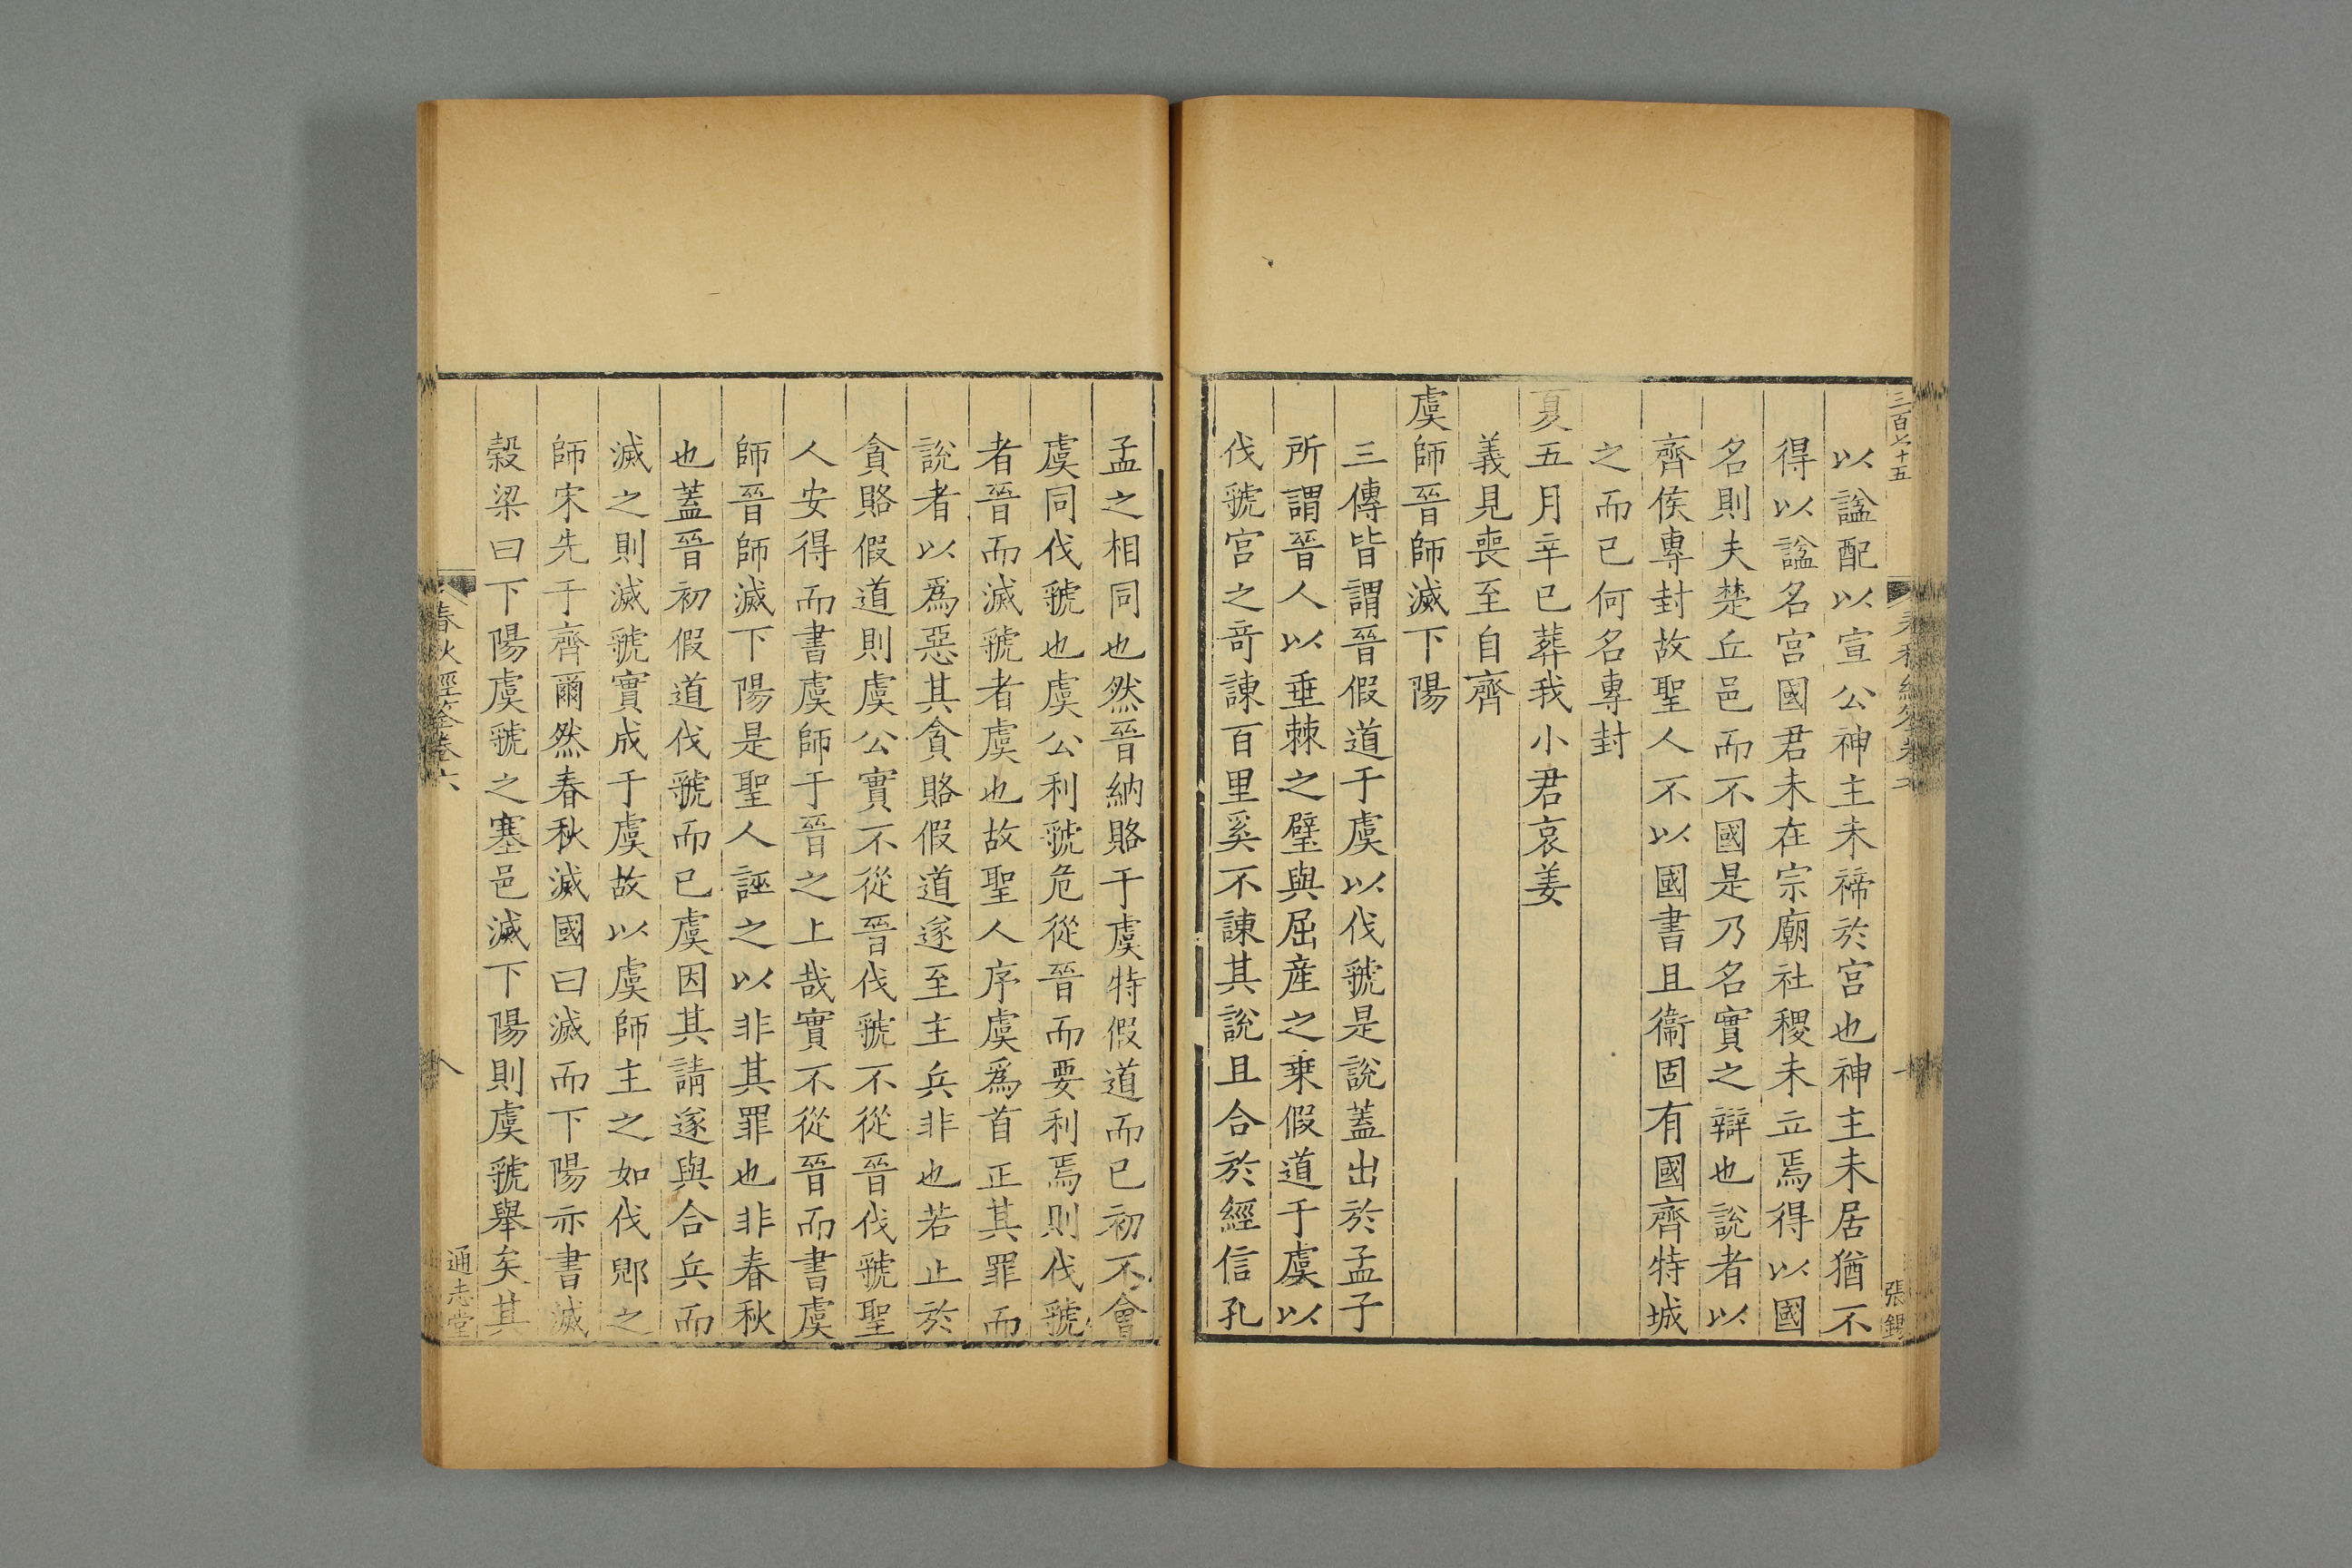 三百七十五
以諡配以宣公神主未禘於宮也神主未居猶不
得以諡名宮國君未在宗廟社稷未立焉得以國
名則夫楚丘邑而不國是乃名實之辯也說者以
齊侯專封故聖人不以國書且衞固有國齊特城
之而已何名專封
夏五月辛巳葬我小君哀姜
義見喪至自齊
虞師晉師滅下陽
三傳皆謂晉假道于虞以伐虢是說蓋出於孟子
所謂晉人以垂棘之璧與屈產之乗假道于虞以
伐虢宮之竒諫百里奚不諫其說且合於經信孔
張錫
孟之相同也然晉納賂于虞特假道而已初不會
虞同伐虢也虞公利虢危從晉而要利焉則伐虢
者晉而滅虢者虞也故聖人序虞爲首正其罪而
說者以爲惡其貪賂假道遂至主兵非也若止於
貪賂假道則虞公實不從晉伐虢不從晉伐虢聖
人安得而書虞師于晉之上哉實不從晉而書虞
師晉師滅下陽是聖人誣之以非其罪也非春秋
也蓋晉初假道伐虢而已虞因其請遂與合兵而
滅之則滅虢實成于虞故以虞師主之如伐郳之
師宋先于齊爾然春秋滅國曰滅而下陽亦書滅
榖梁曰下陽虞虢之塞邑滅下陽則虞虢舉矣其
春秋經筌卷六
八
通志堂